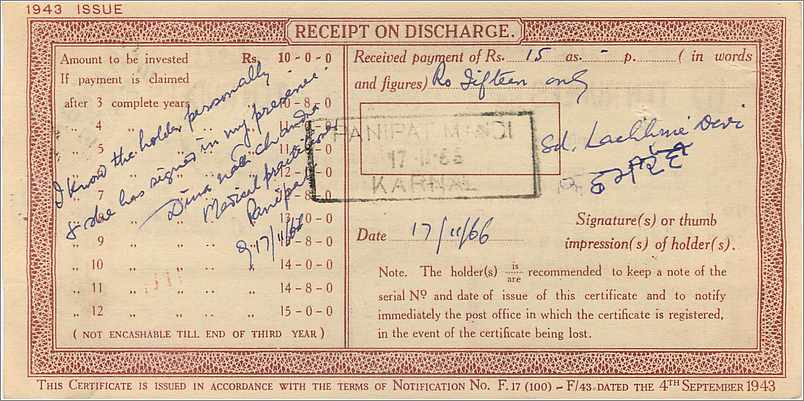 1943 ISSUE
RECEIPT ON DISCHARGE.
Amount to be invested Rs. 10-0-0
If payment is claimed
after 3 complete years ,, 10-8-0
,, 4 ,, ,, ,,
,, ,, ,,
,, ,,
,, 9 ,, ,, ,,
,, 10 ,, ,, ,, 14-0-0
,, 11 ,, ,, ,, 14-8-0
,, 12 ,, ,, ,, 15-0-0
( NOT ENCASHABLE TILL END OF THIRD YEAR )
I know the holder personally
& she has signed in my presence.
Dina nath
Medical practitioner
Panipat
17/11/66
Received payment of Rs. 15 as. - p. ( in words
and figures) Rs Fifteen only
PANIPAT MANDI
17-11-66
KARNAL
Sd. Lachhmi Devi
Date 17/11/66
Signature(s) or thumb
impression(s) of holder(s).
Note. The holder(s) is/are recommended to keep a note of the
serial No and date of issue of this certificate and to notify
immediately the post office in which the certificate is registered,
in the event of the certificate being lost.
THIS CERTIFICATE IS ISSUED IN ACCORDANCE WITH THE TERMS OF NOTIFICATION NO. F.17 (100) – F/43 DATED THE 4TH SEPTEMBER 1943